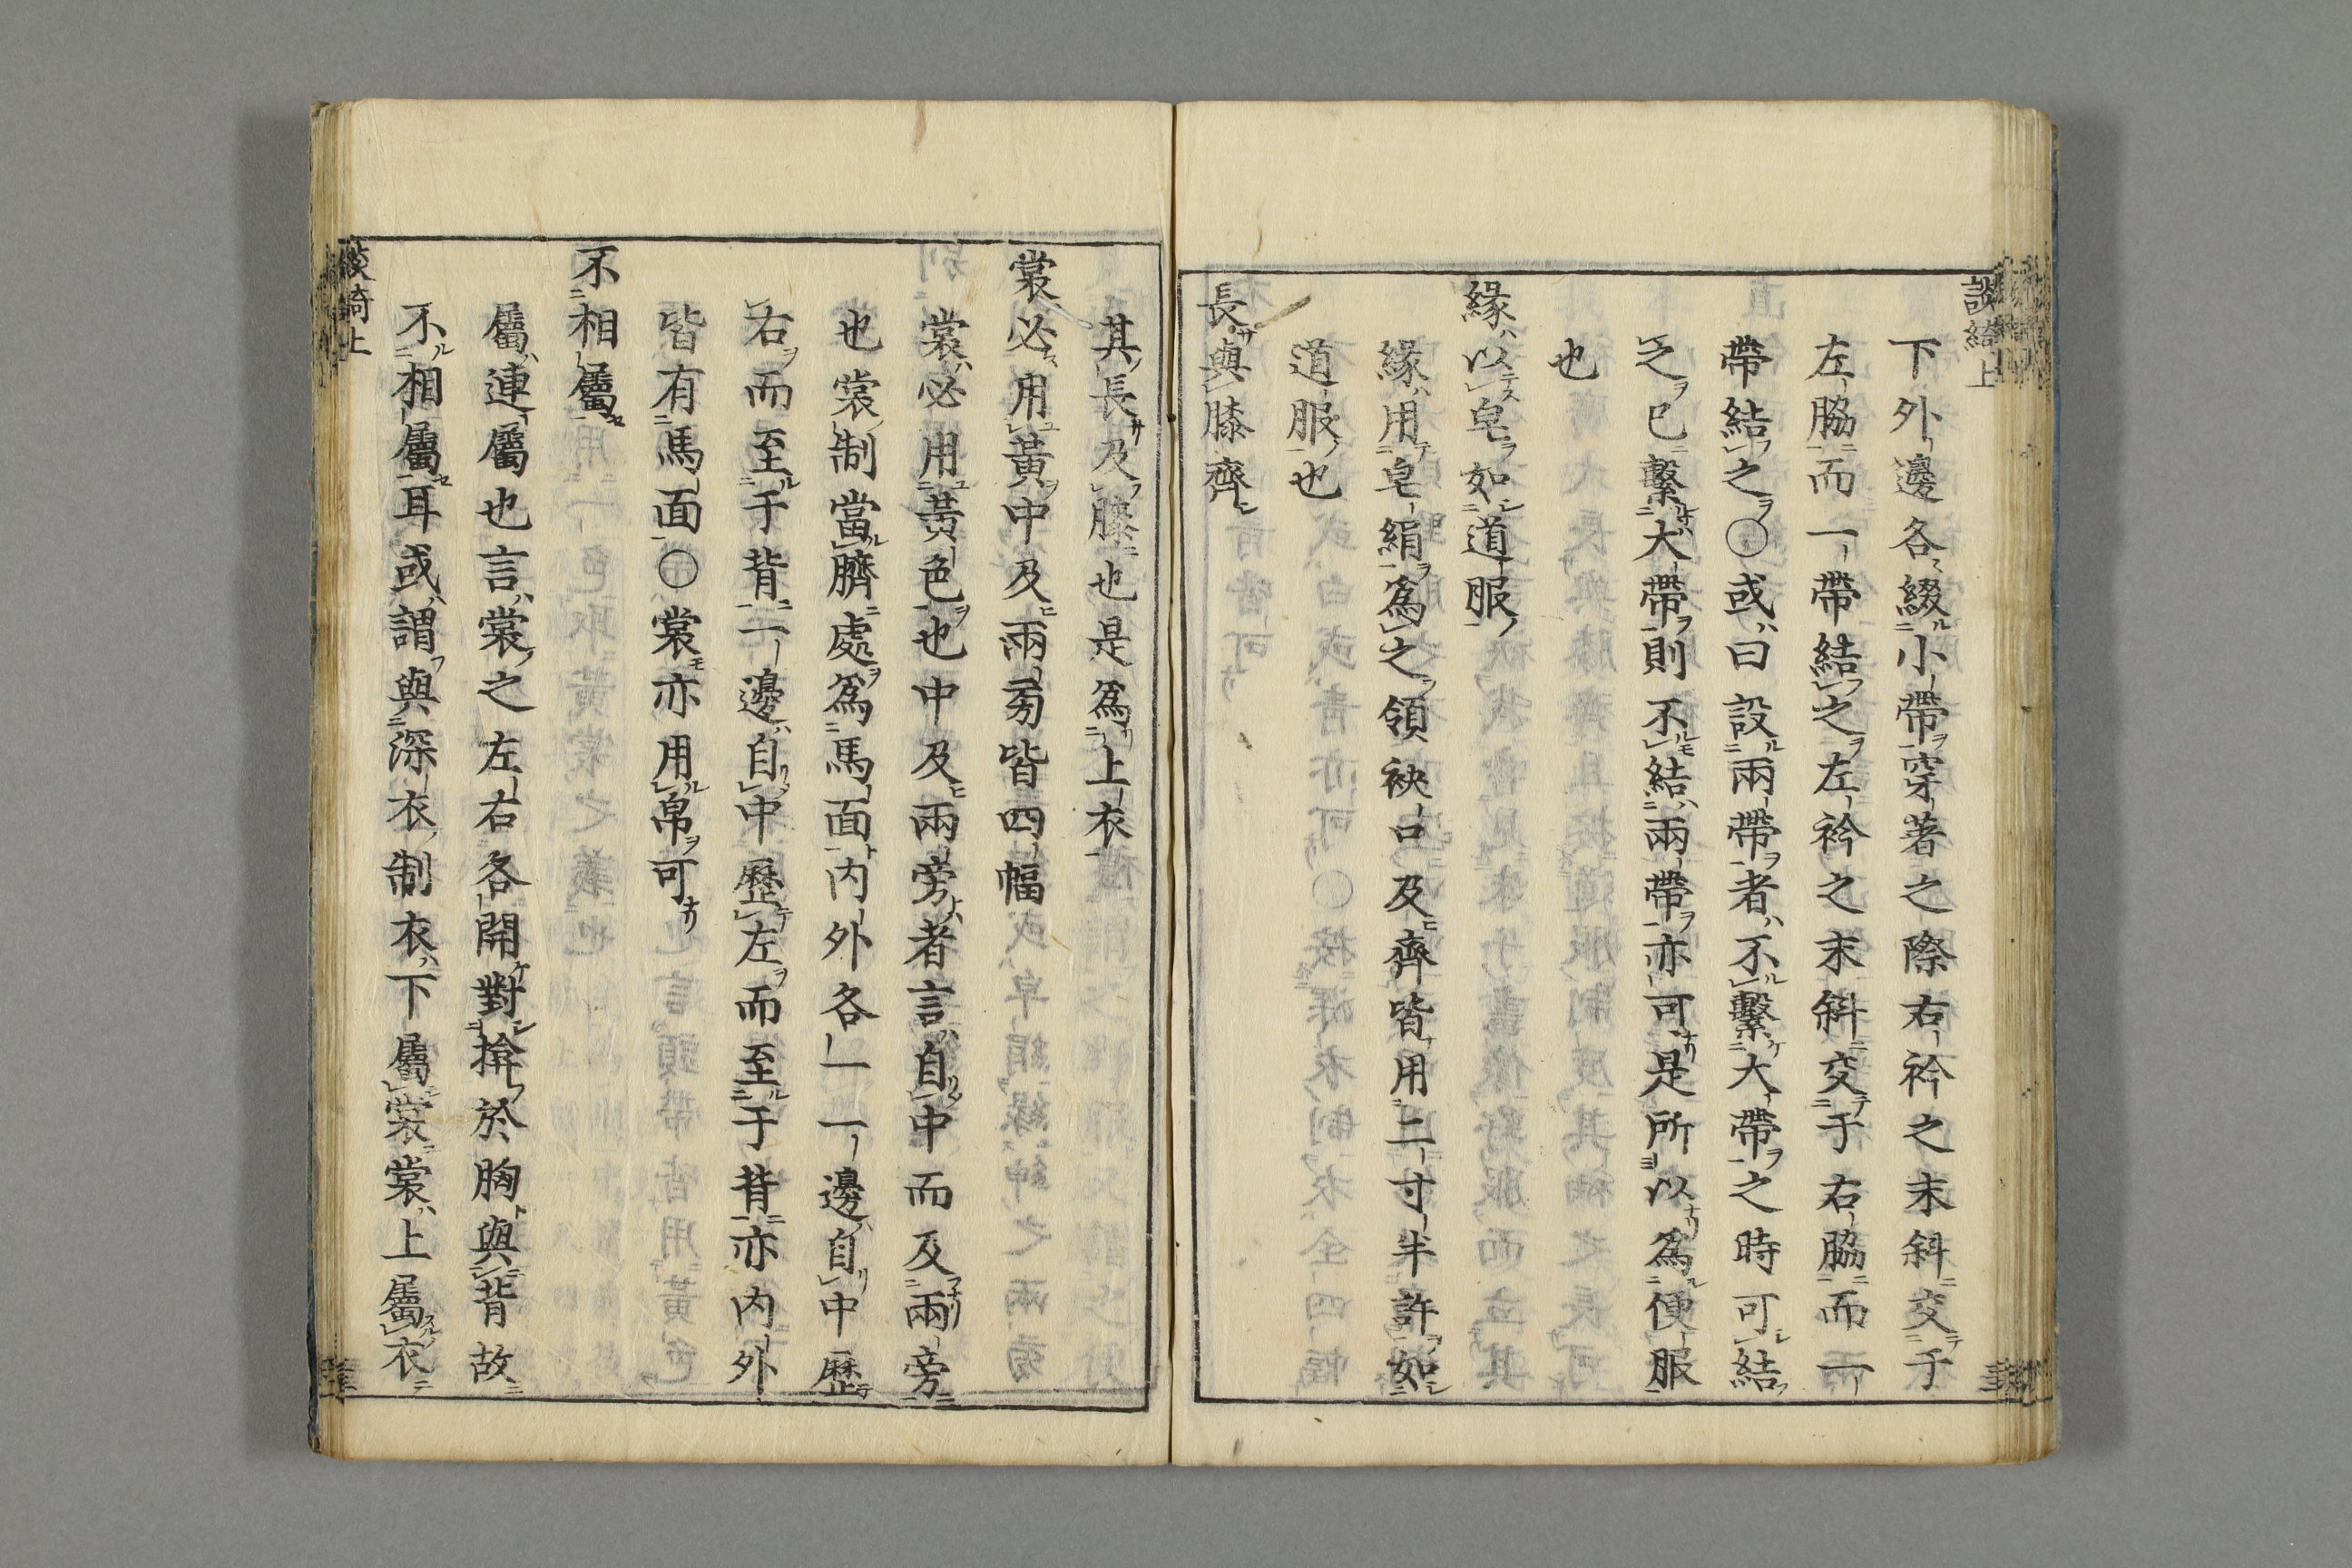 談綺上
下外邊各綴小帶穿著之際右衿之末斜交于
左脇而一帶結之左衿之末斜交于右脇而一
帶結之○或曰設兩帶者不繫大帶之時可結
之已繫大帶則不結兩帶亦可是所以爲便服
也
緣以皂如道服
緣用皂絹爲之領袂口及齊皆用二寸半許如
道服也
長與膝齊
其長及膝也是爲上衣
裳必用黃中及兩旁皆四幅
裳必用黃色也中及兩旁者言自中而及兩旁
也裳制當臍處爲馬面内外各一一邊自中歷
右而至于背一邊自中歷左而至于背亦内外
皆有馬面○裳亦用帛可
不相屬
屬連屬也言裳之左右各開對揜於胸與背故
不相屬耳或謂與深衣制衣下屬裳裳上屬衣
談綺上